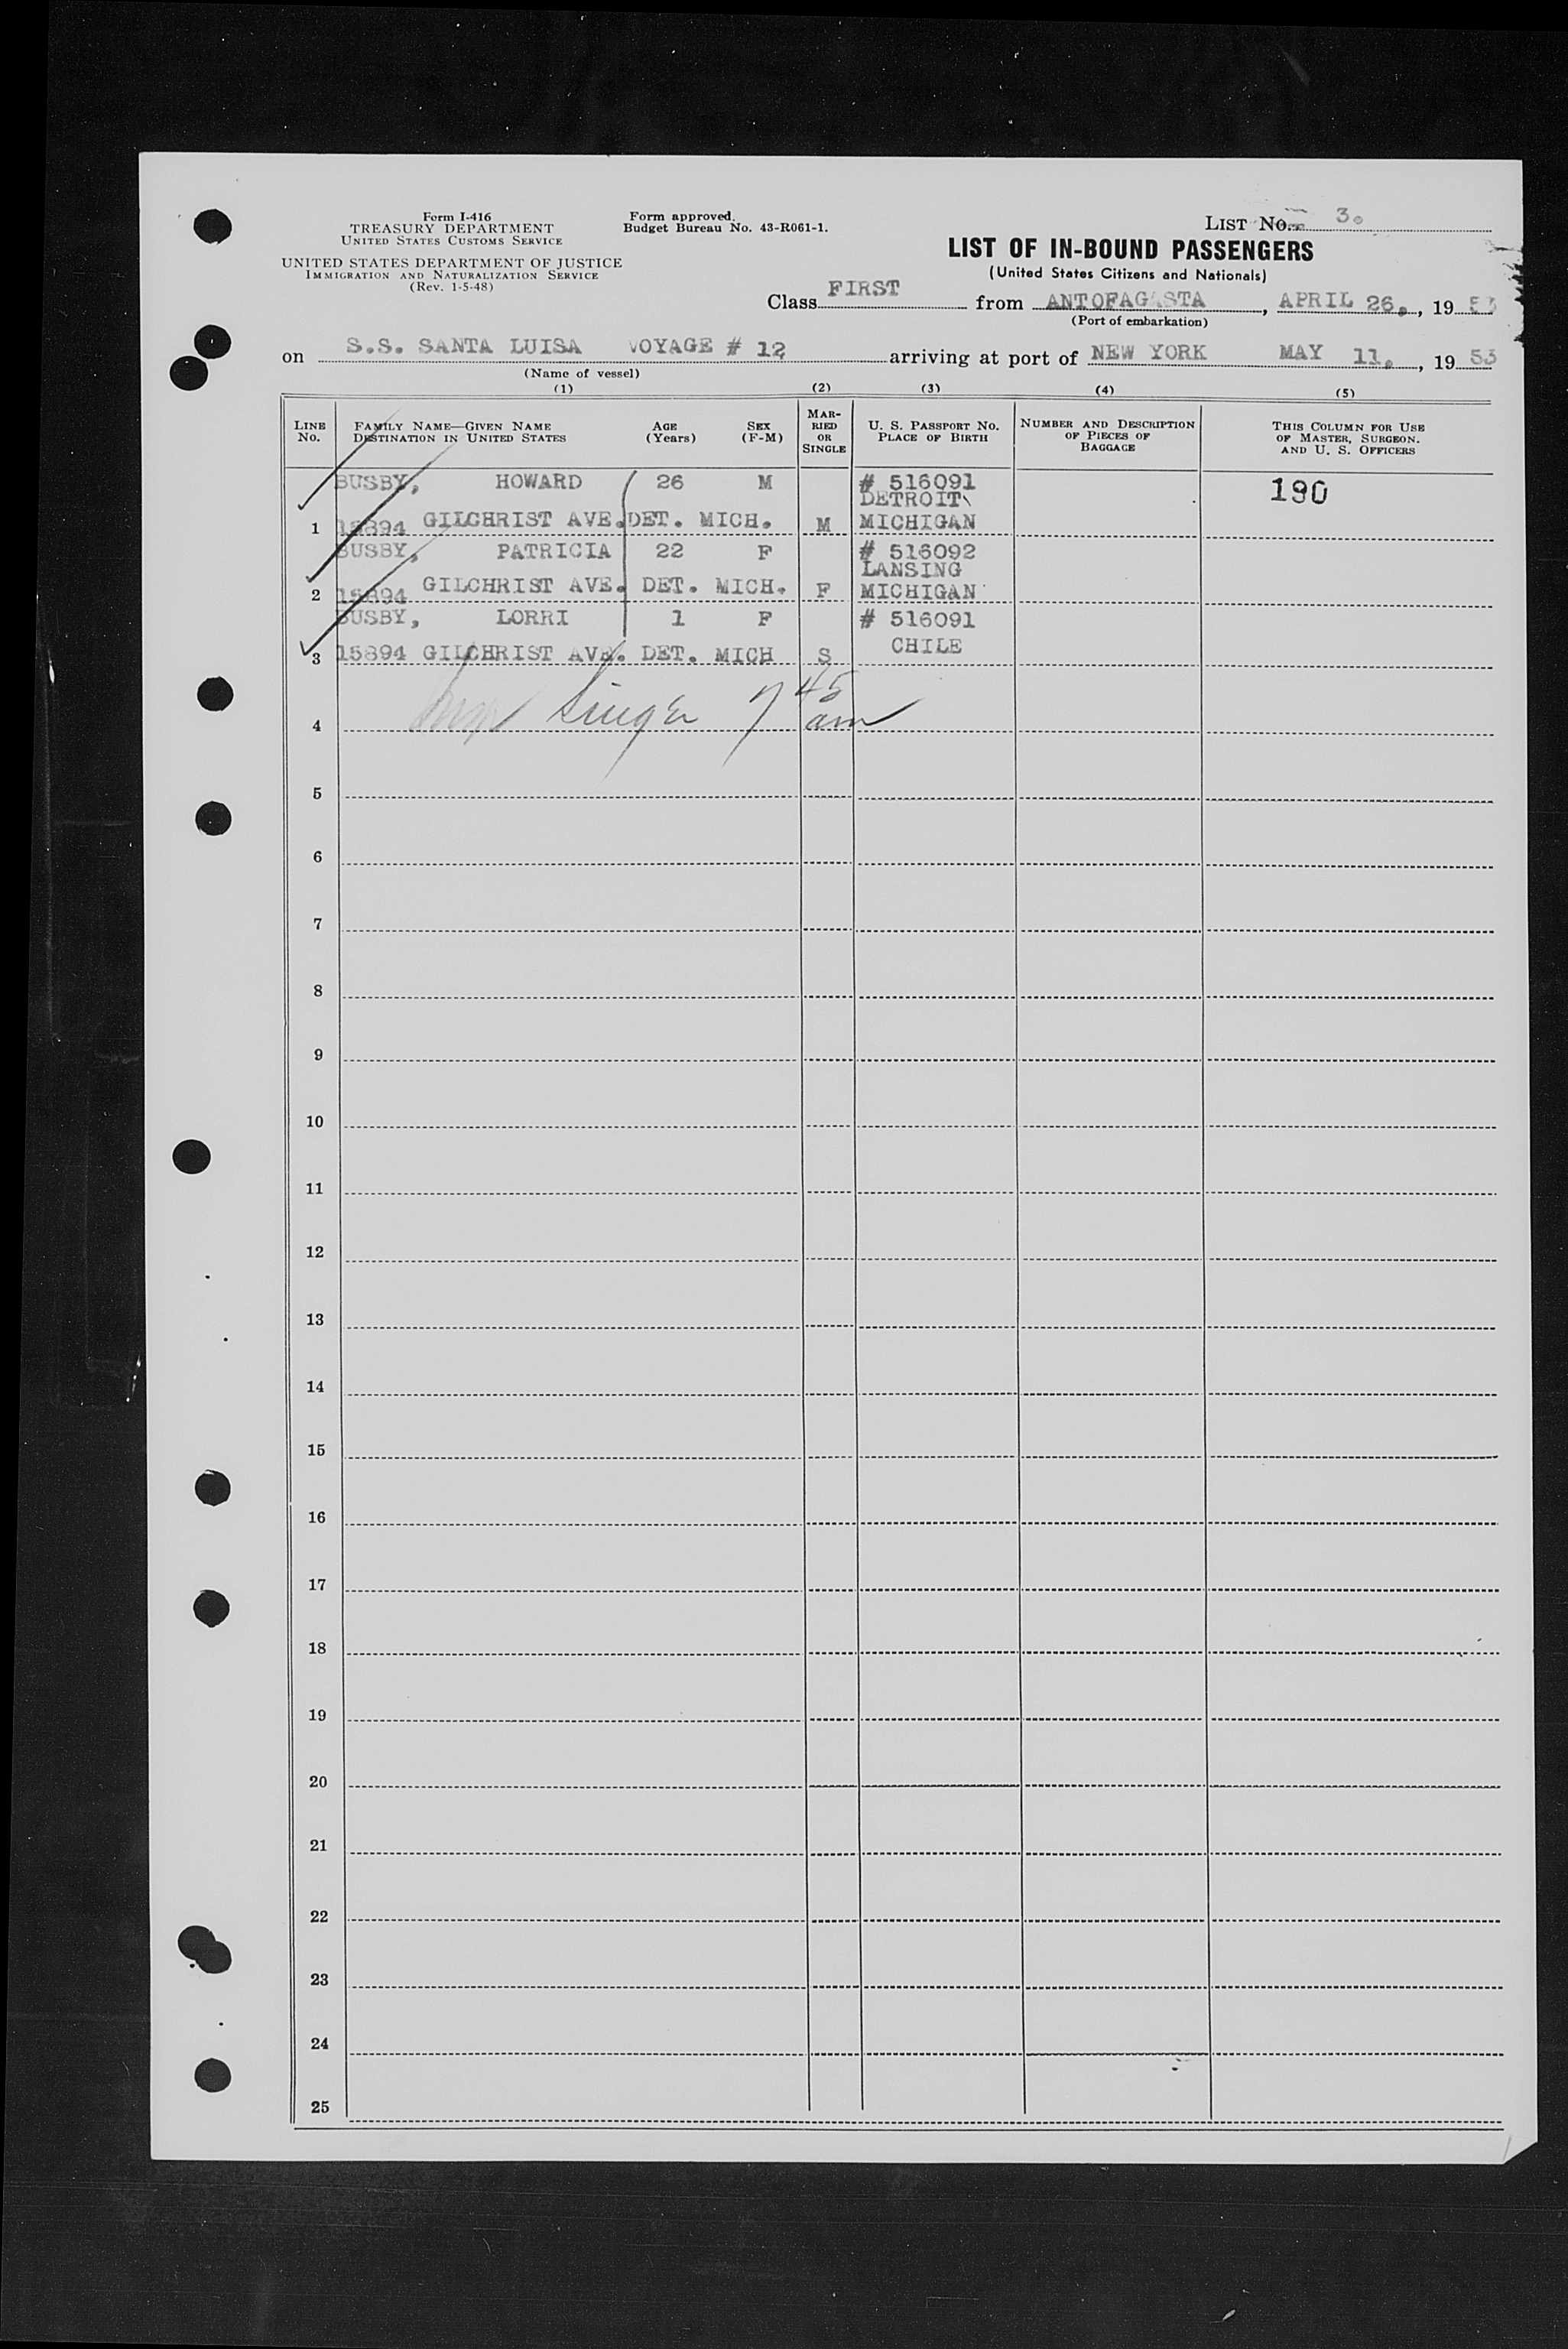 Form I-416
TREASURY DEPARTMENT
UNITED STATES CUSTOMS SERVICE
UNITED STATES DEPARTMENT OF JUSTICE
IMMIGRATION AND NATURALIZATION SERVICE
(Rev. 1-5-48)
Form approved.
Budget Bureau No. 43-R061-1.
LIST No. 3.
LIST OF IN-BOUND PASSENGERS
(United States Citizens and Nationals)
Class FIRST from ANTOFAGASTA, APRIL 26., 19 53
(Port of embarkation)
on S.S. SANTA LUISA VOYAGE # 12 arriving at port of NEW YORK MAY 11., 19 53
(Name of vessel)
(1) (2) (3) (4) (5)
LINE No.
FAMILY NAME—GIVEN NAME
DESTINATION IN UNITED STATES
AGE (Years)
SEX (F-M)
MARRIED OR SINGLE
U. S. PASSPORT No.
PLACE OF BIRTH
NUMBER AND DESCRIPTION OF PIECES OF BAGGAGE
THIS COLUMN FOR USE OF MASTER, SURGEON. AND U. S. OFFICERS
BUSBY, HOWARD 26 M # 516091 190
DETROIT
1 15894 GILCHRIST AVE. DET. MICH. M MICHIGAN
BUSBY, PATRICIA 22 F # 516092
LANSING
2 15894 GILCHRIST AVE. DET. MICH. F MICHIGAN
BUSBY, LORRI 1 F # 516091
CHILE
3 15894 GILCHRIST AVE. DET. MICH S
4 Singer 7 45 am
5
6
7
8
9
10
11
12
13
14
15
16
17
18
19
20
21
22
23
24
25